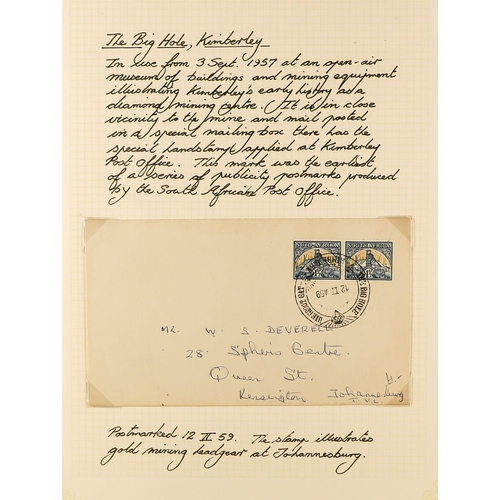 The Big Hole, Kimberley
In use from 3 Sept. 1957 at an open-air
museum of buildings and mining equipment
illustrating Kimberley's early history as a
diamond mining centre. (It is in close
vicinity to the mine and mail posted
in a special mailing box there has the
special handstamp applied at Kimberley
Post Office. This mark was the earliest
of a series of publicity postmarks produced
by the South African Post Office.
SOUTH AFRICA
DIE GROOT GAT
THE BIG HOLE
12 II A59
MR. W. S. DEVERELL
28 Centre.
Queen St.
Kensington Johannesburg
TVL.
Postmarked 12 II 59. The stamp illustrates
gold mining headgear at Johannesburg.